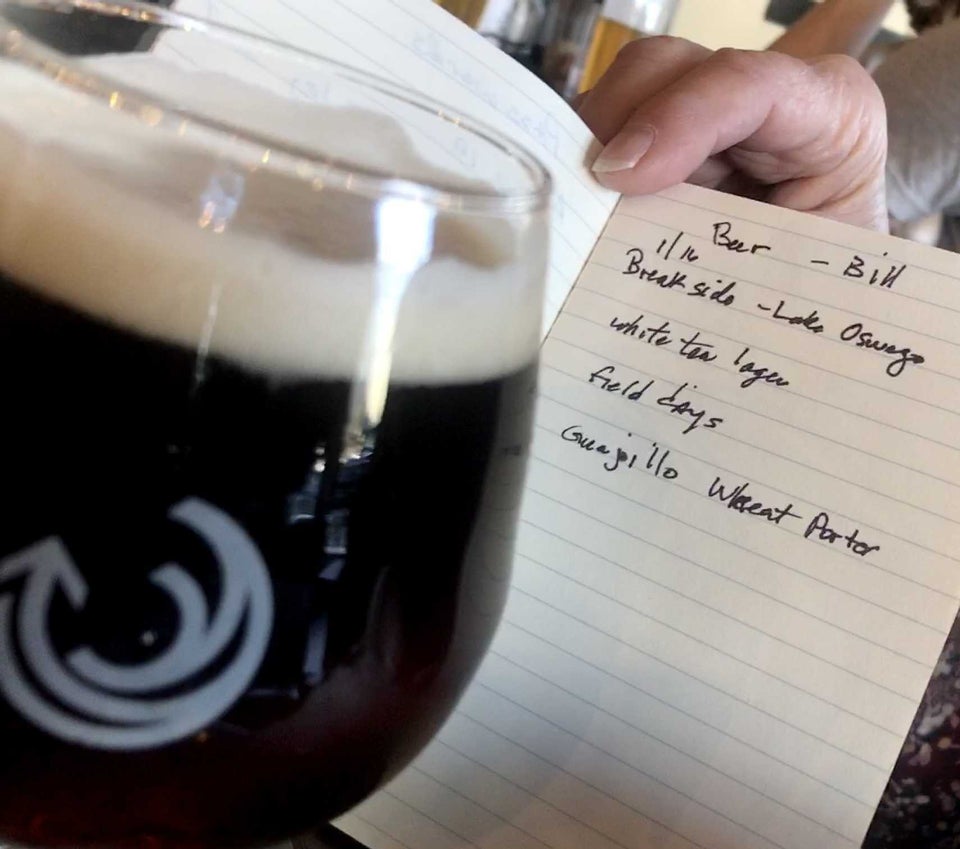 Beer - Bill
1/16
Breakside - Lake Oswego
white tea lager
field days
Guajillo Wheat Porter